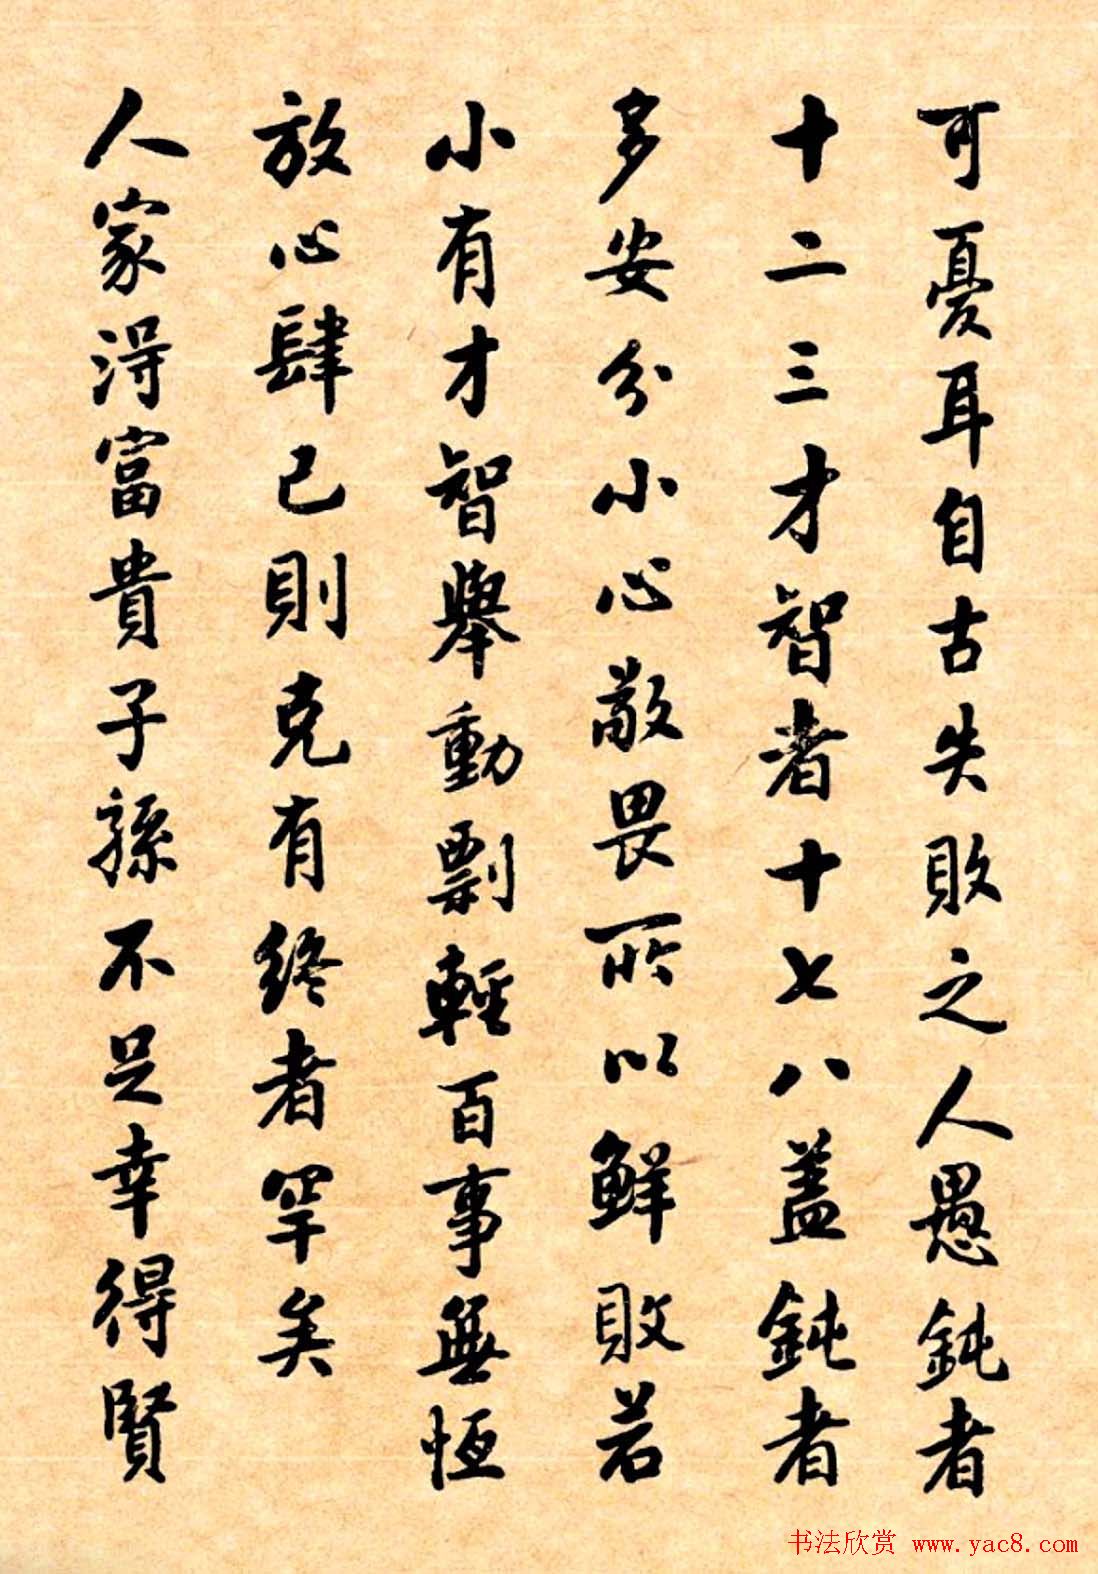 可憂耳自古失敗之人愚鈍者
十二三才智者十七八蓋鈍者
多安分小心敬畏所以鮮敗若
小有才智舉動剽輕百事無恆
放心肆己則克有終者罕矣
人家得富貴子孫不足幸得賢
书法欣赏 www.yac8.com